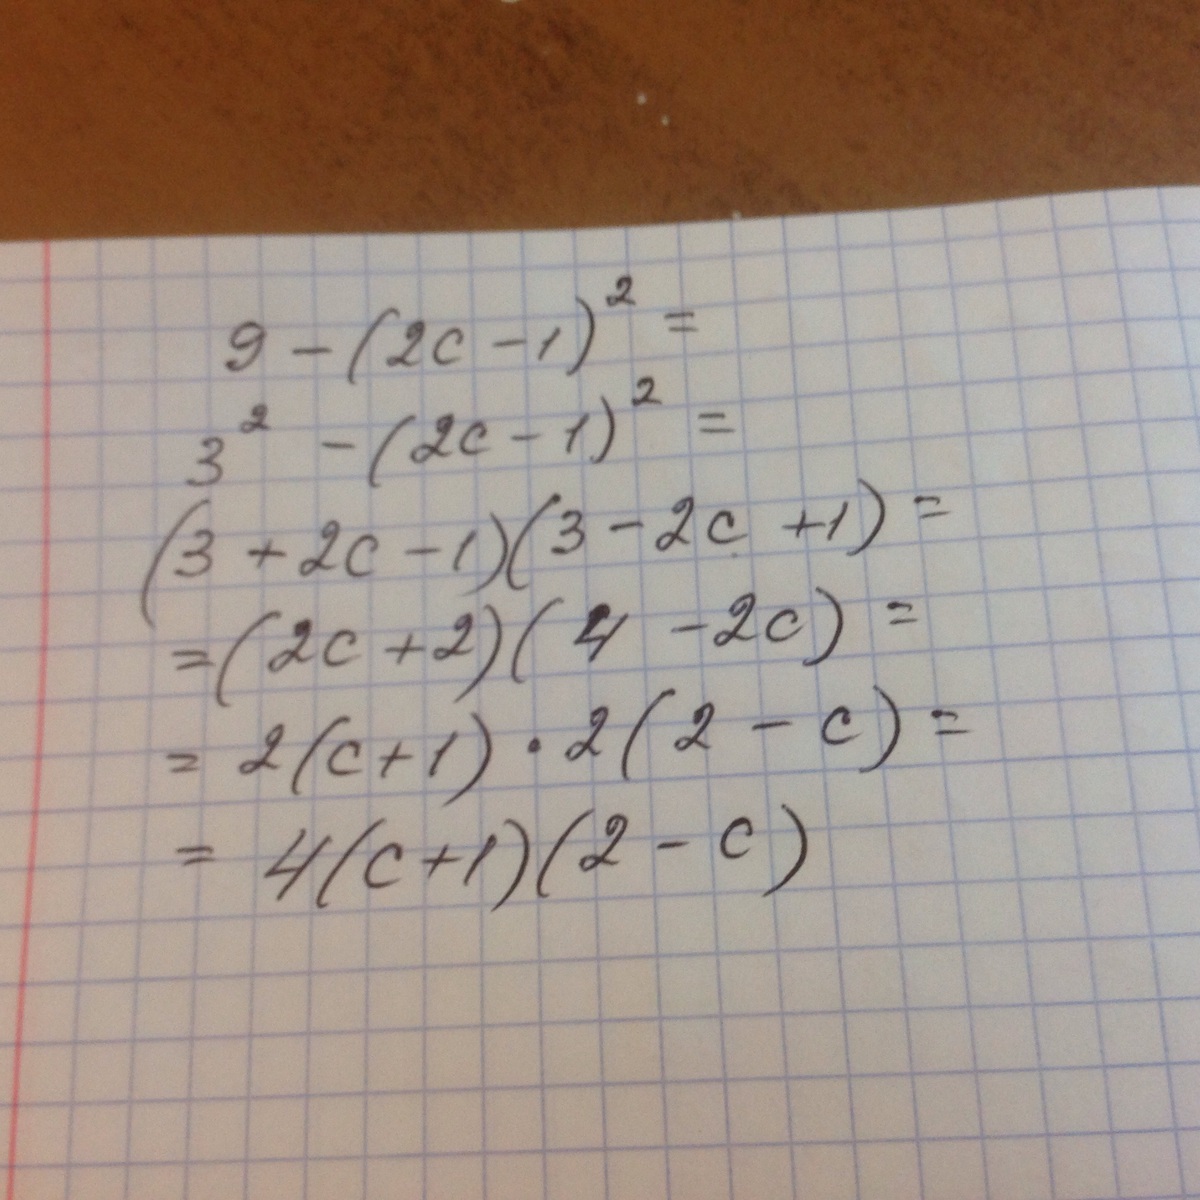 9 - (2c - 1)² =
3² - (2c - 1)² =
(3 + 2c - 1)(3 - 2c + 1) =
= (2c + 2)(4 - 2c) =
= 2(c + 1) · 2(2 - c) =
= 4(c + 1)(2 - c)